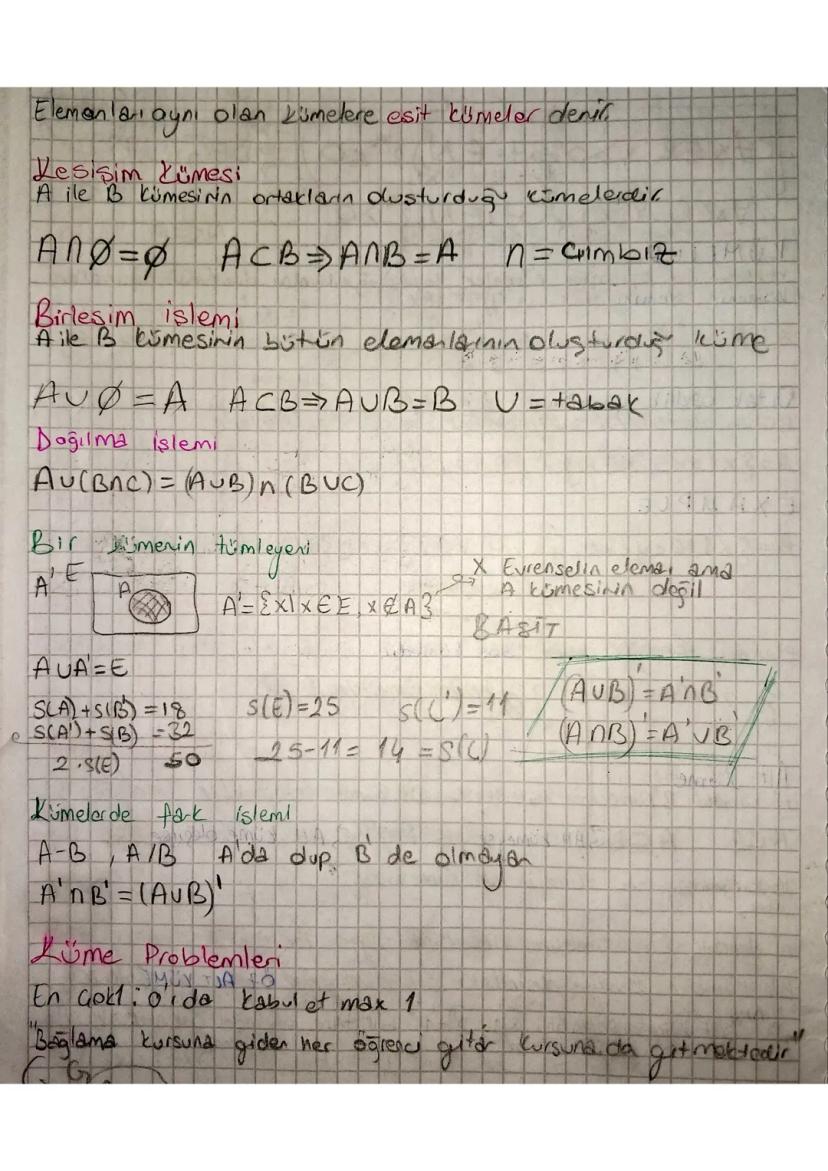 Elemanları aynı olan kümelere esit kümeler denir.
Kesişim Kümesi
A ile B kümesinin ortakların oluşturduğu kümelerdir.
A∩∅=∅ A⊂B⇒A∩B=A ∩=cımbız
Birleşim işlemi
A ile B kümesinin bütün elemanlarının oluşturduğu küme
A∪∅=A A⊂B⇒A∪B=B U=tabak
Dağılma işlemi
A∪(B∩C)=(A∪B)∩(B∪C)
Bir kümenin tümleyeni
A' E A A'={x|x∈E, x∉A} → x Evrenselin elemanı ama
A kümesinin değil
BASİT
A∪A'=E
S(A)+S(B')=18 S(E)=25 S(C')=11 (A∪B)'=A'∩B'
S(A')+S(B)=32 25-11=14=S(C) (A∩B)'=A'∪B'
2.S(E) 50
Kümelerde fark işlemi
A-B, A/B A'da olup B'de olmayan
A'∩B'=(A∪B)'
Küme Problemleri
En çok 1: 0'ı da kabul et max 1
"Bağlama kursuna giden her öğrenci gitar kursuna da gitmektedir"